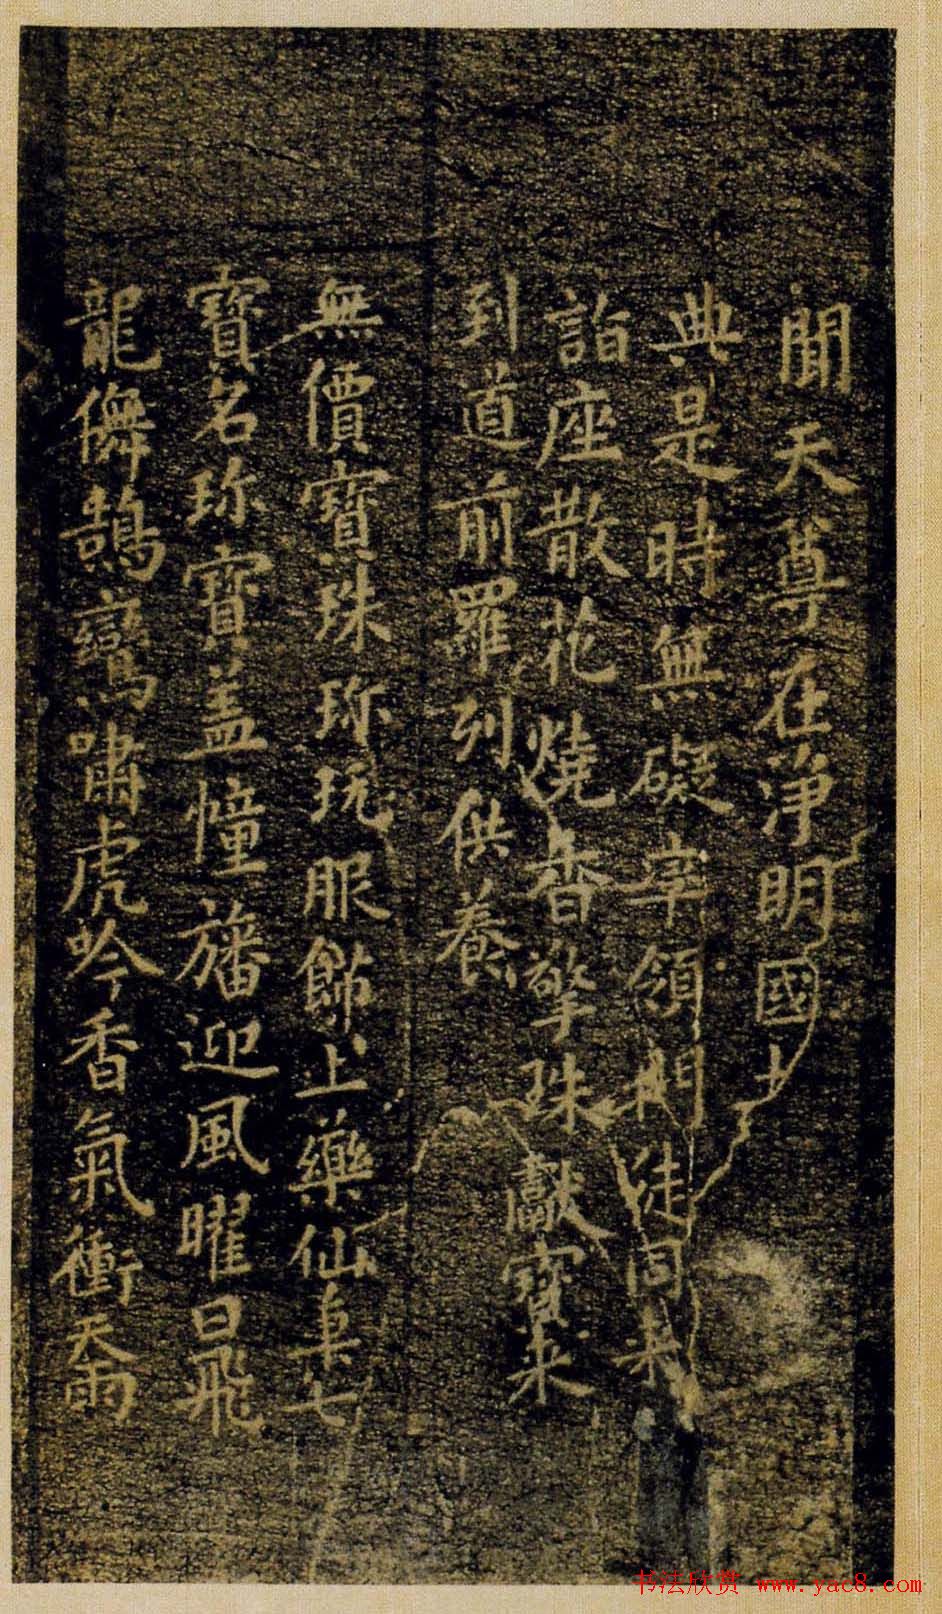 聞天尊在淨明國土
典是時無礙宰領門徒同來
詣座散花燒香擎珠獻寶来
到道前羅列供養
無價寶珠珎玩服餙上藥仙草七
寶名珎寶盖憧旛迎風曜日飛
龍儛鵠鸞嘯虎吟香氣衝天雨
书法欣赏 www.yac8.com